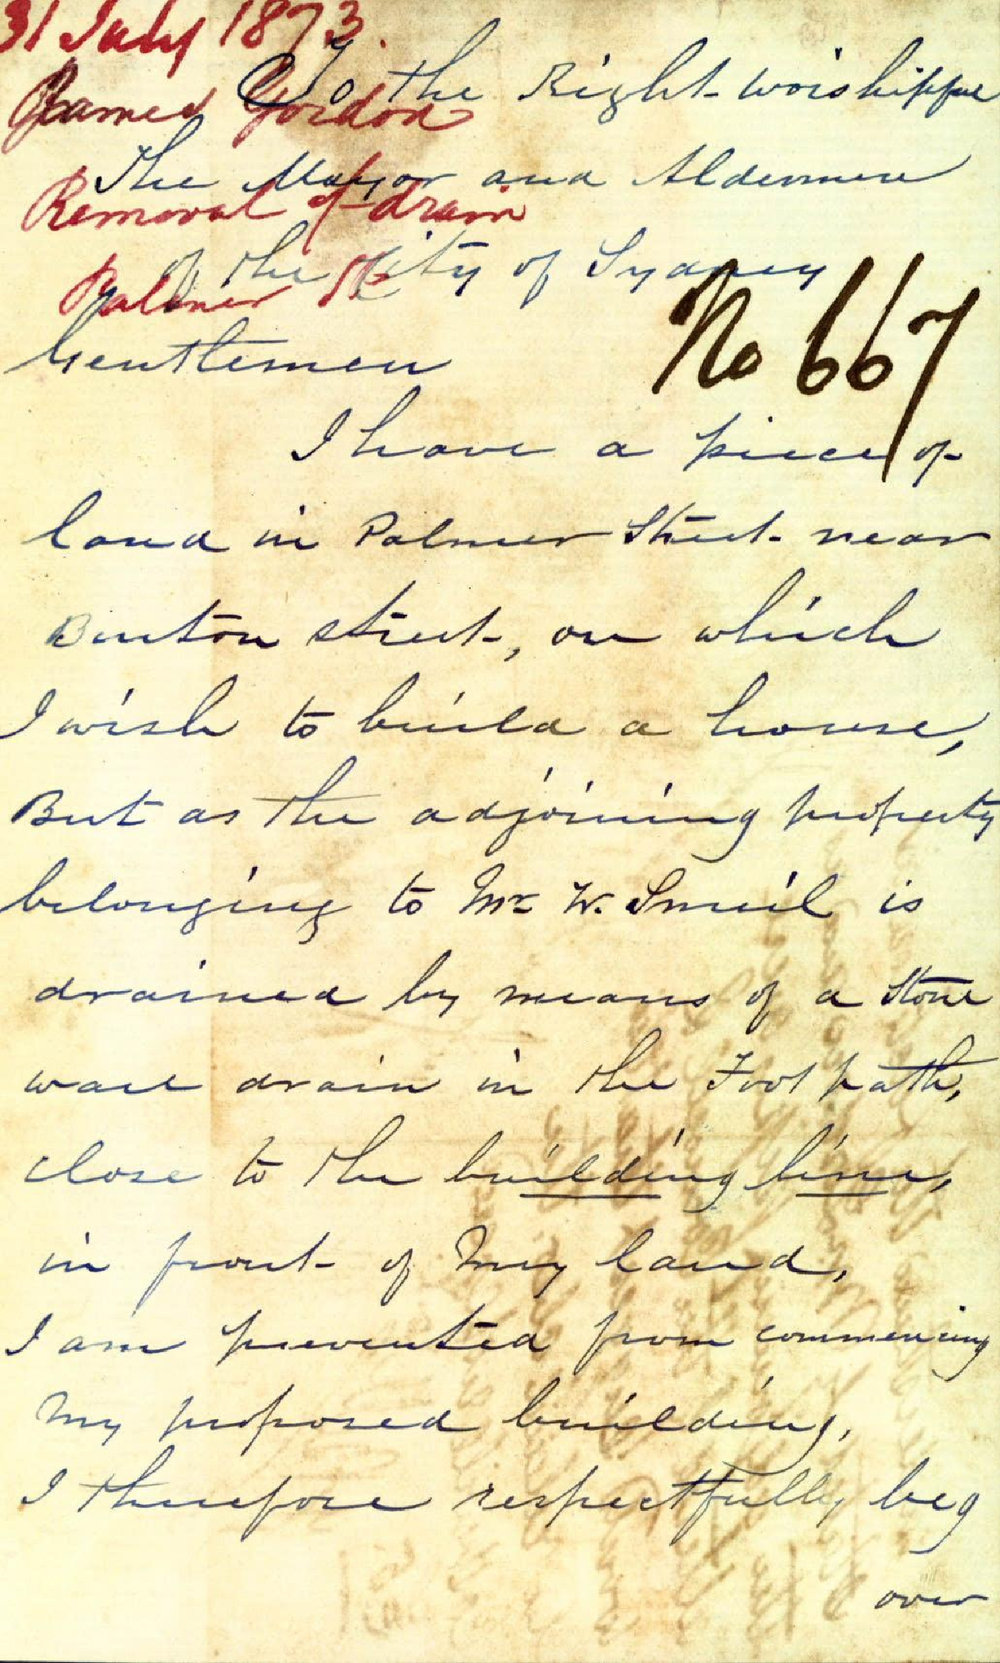 31 July 1873.
James Gordon
Removal of drain
Palmer St
No 667
To the Right worshipful
The Mayor and Aldermen
of the City of Sydney
Gentlemen
I have a piece of
land in Palmer Street near
Burton street, on which
I wish to build a house,
But as the adjoining property
belonging to Mr W. Smeil is
drained by means of a Stone
ware drain in the Foot path,
close to the building line,
in front of My land,
I am prevented from commencing
My proposed building,
I therefore respectfully beg
over